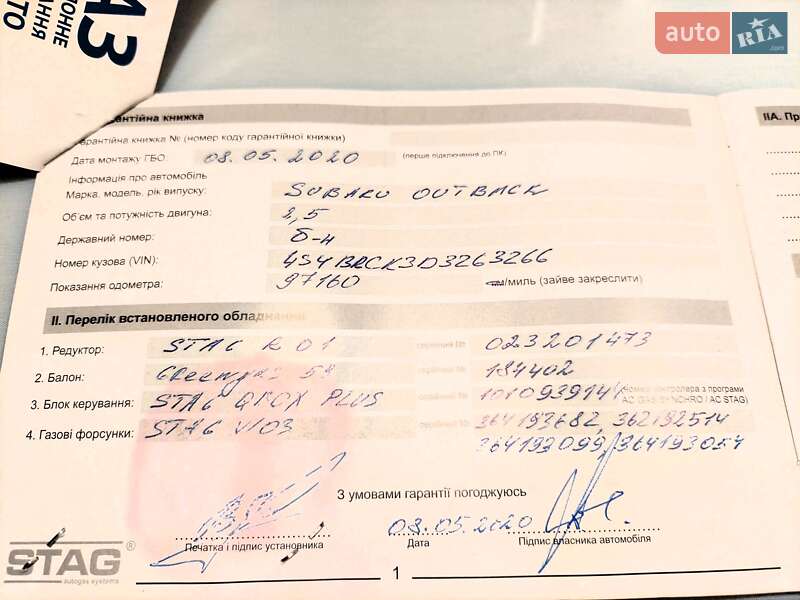 АЗ
ЦІОННЕ
АННЯ
ТО
auto RIA .com
антійна книжка
ІІА. Пр
арантійна книжка № (номер коду гарантійної книжки)
Дата монтажу ГБО: 08.05.2020 (перше підключення до ПК)
Інформація про автомобіль
Марка, модель, рік випуску: SUBARU OUTBACK
Об'єм та потужність двигуна: 2,5
Державний номер: б-н
Номер кузова (VIN): 4S4BRCK3D3263266
Показання одометра: 97160 км/миль (зайве закреслити)
ІІ. Перелік встановленого обладнання
1. Редуктор: STAG R01 серійний № 023201473
2. Балон: серійний № 184402
3. Блок керування: STAG QBOX PLUS серійний № 1010939144 Номер контролера з програми
AC (GAS SYNCHRO / AC STAG)
4. Газові форсунки: STAG W03 серійний № 364193682, 362192514
364193099, 364193054
З умовами гарантії погоджуюсь
08.05.2020
Печатка і підпис установника Дата Підпис власника автомобіля
STAG®
autogas systems
1